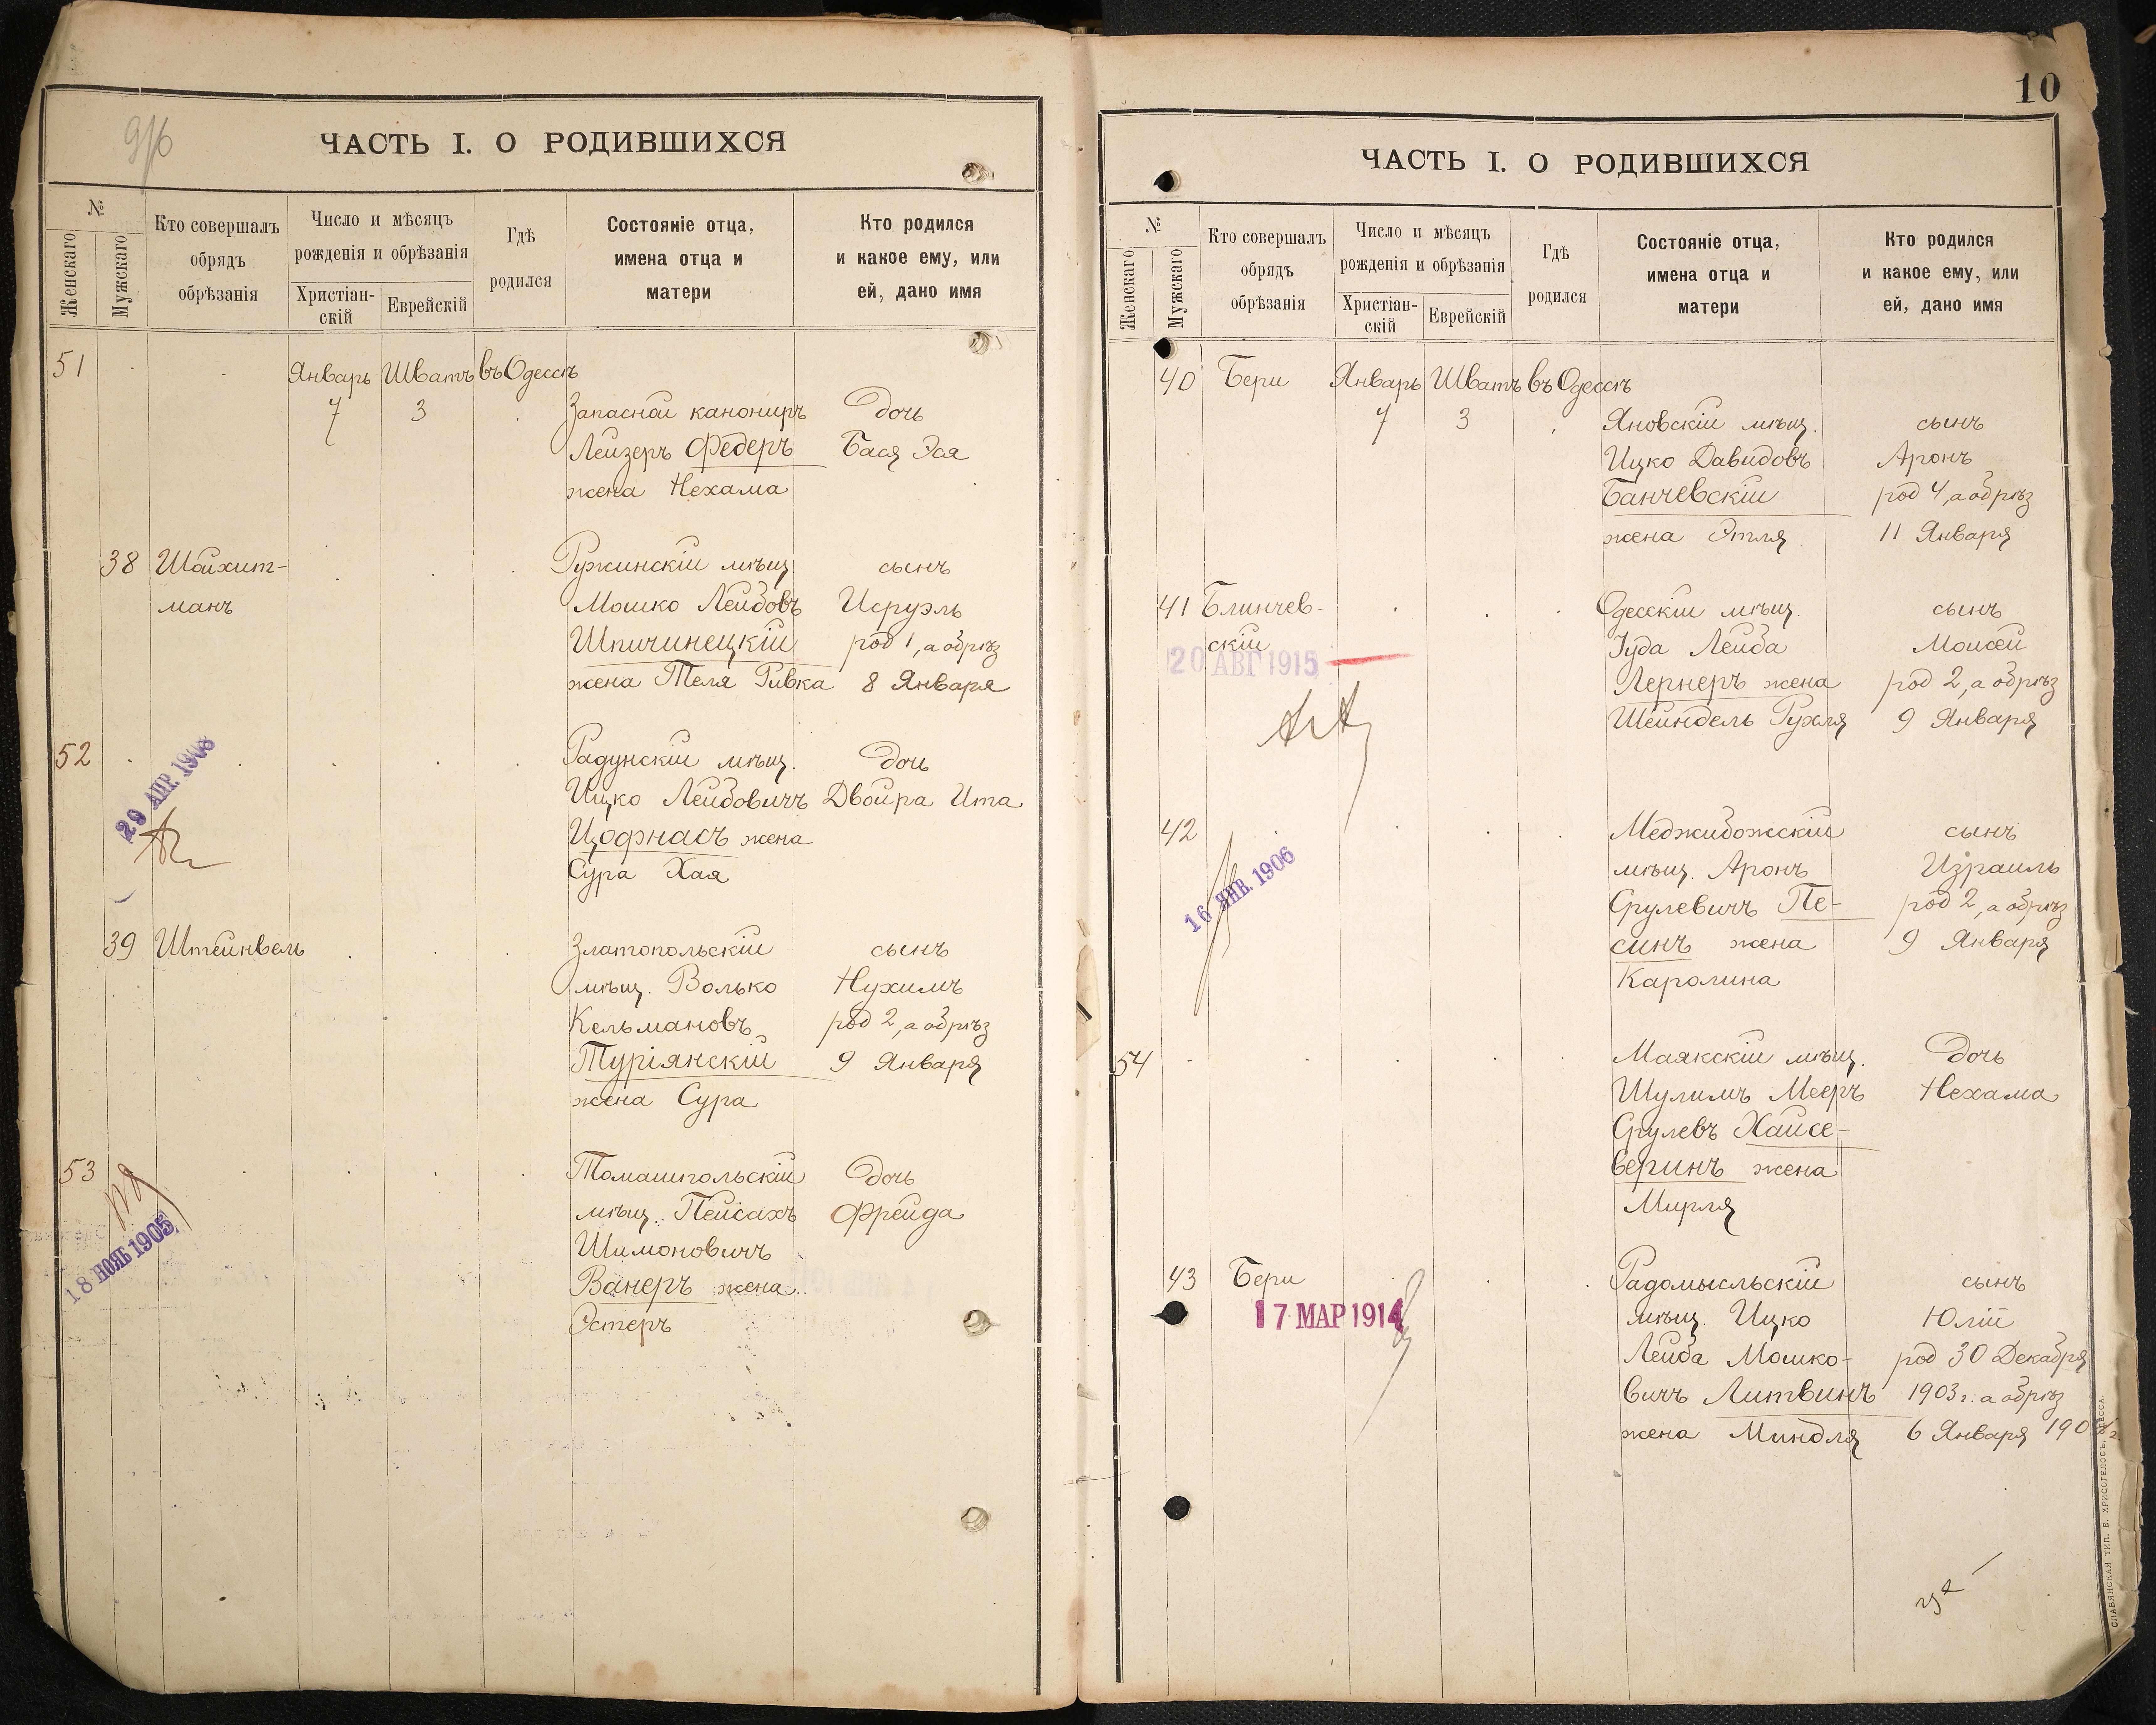 ЧАСТЬ I. О РОДИВШИХСЯ
№
Женскаго
Мужскаго
Кто совершалъ
обрядъ
обрѣзанія
Число и мѣсяцъ
рожденія и обрѣзанія
Христіан-
скій
Еврейскій
Гдѣ
родился
Состояніе отца,
имена отца и
матери
Кто родился
и какое ему, или
ей, дано имя
51 Январь Шватъ въ Одессѣ
7 3 Запасной канониръ дочь
Лейзеръ Федеръ Бася Эся
жена Нехама
38 Шойхит- Ружинскій мѣщ. сынъ
манъ Мошко Лейбовъ Исруэль
Шпичинецкій род 1, а обрѣз
жена Теля Ривка 8 Января
52 Радунскій мѣщ. дочь
29 АПР. 1908
Ицко Лейбовичъ Двойра Ита
Цофнасъ жена
Сура Хая
39 Штейнвель Златопольскій сынъ
мѣщ. Волько Нухимъ
Кельмановъ род 2, а обрѣз
Туріянскій 9 Января
жена Сура
53 Томашпольскій дочь
мѣщ. Пейсахъ Фрейда
18 НОЯБ 1905
Шимоновичъ
Ванеръ жена
Эстеръ
10
ЧАСТЬ I. О РОДИВШИХСЯ
№
Женскаго
Мужскаго
Кто совершалъ
обрядъ
обрѣзанія
Число и мѣсяцъ
рожденія и обрѣзанія
Христіан-
скій
Еврейскій
Гдѣ
родился
Состояніе отца,
имена отца и
матери
Кто родился
и какое ему, или
ей, дано имя
40 Бери Январь Шватъ въ Одессѣ
7 3 Яновскій мѣщ. сынъ
Ицко Давидовъ Аронъ
Банчевскій род 4, а обрѣз
жена Этля 11 Января
41 Блинчев- Одесскій мѣщ. сынъ
скій Іуда Лейба Моисей
20 АВГ 1915
Лернеръ жена род 2, а обрѣз
Шейндель Рухля 9 Января
42 Меджибожскій сынъ
16 ЯНВ. 1906
мѣщ. Аронъ Израиль
Срулевичъ Пе- род 2, а обрѣз
синъ жена 9 Января
Каролина
54 Маякскій мѣщ. дочь
Шулимъ Мееръ Нехама
Срулевъ Хайсе-
веринъ жена
Мирля
43 Бери Радомысльскій сынъ
17 МАР 1914
мѣщ. Ицко Юлій
Лейба Мошко- род 30 Декабря
вичъ Литвинъ 1903 г. а обрѣз
жена Миндля 6 Января
СЛАВЯНСКАЯ ТИП. Е. ХРИСОГЕЛОСЪ, ОДЕССА.